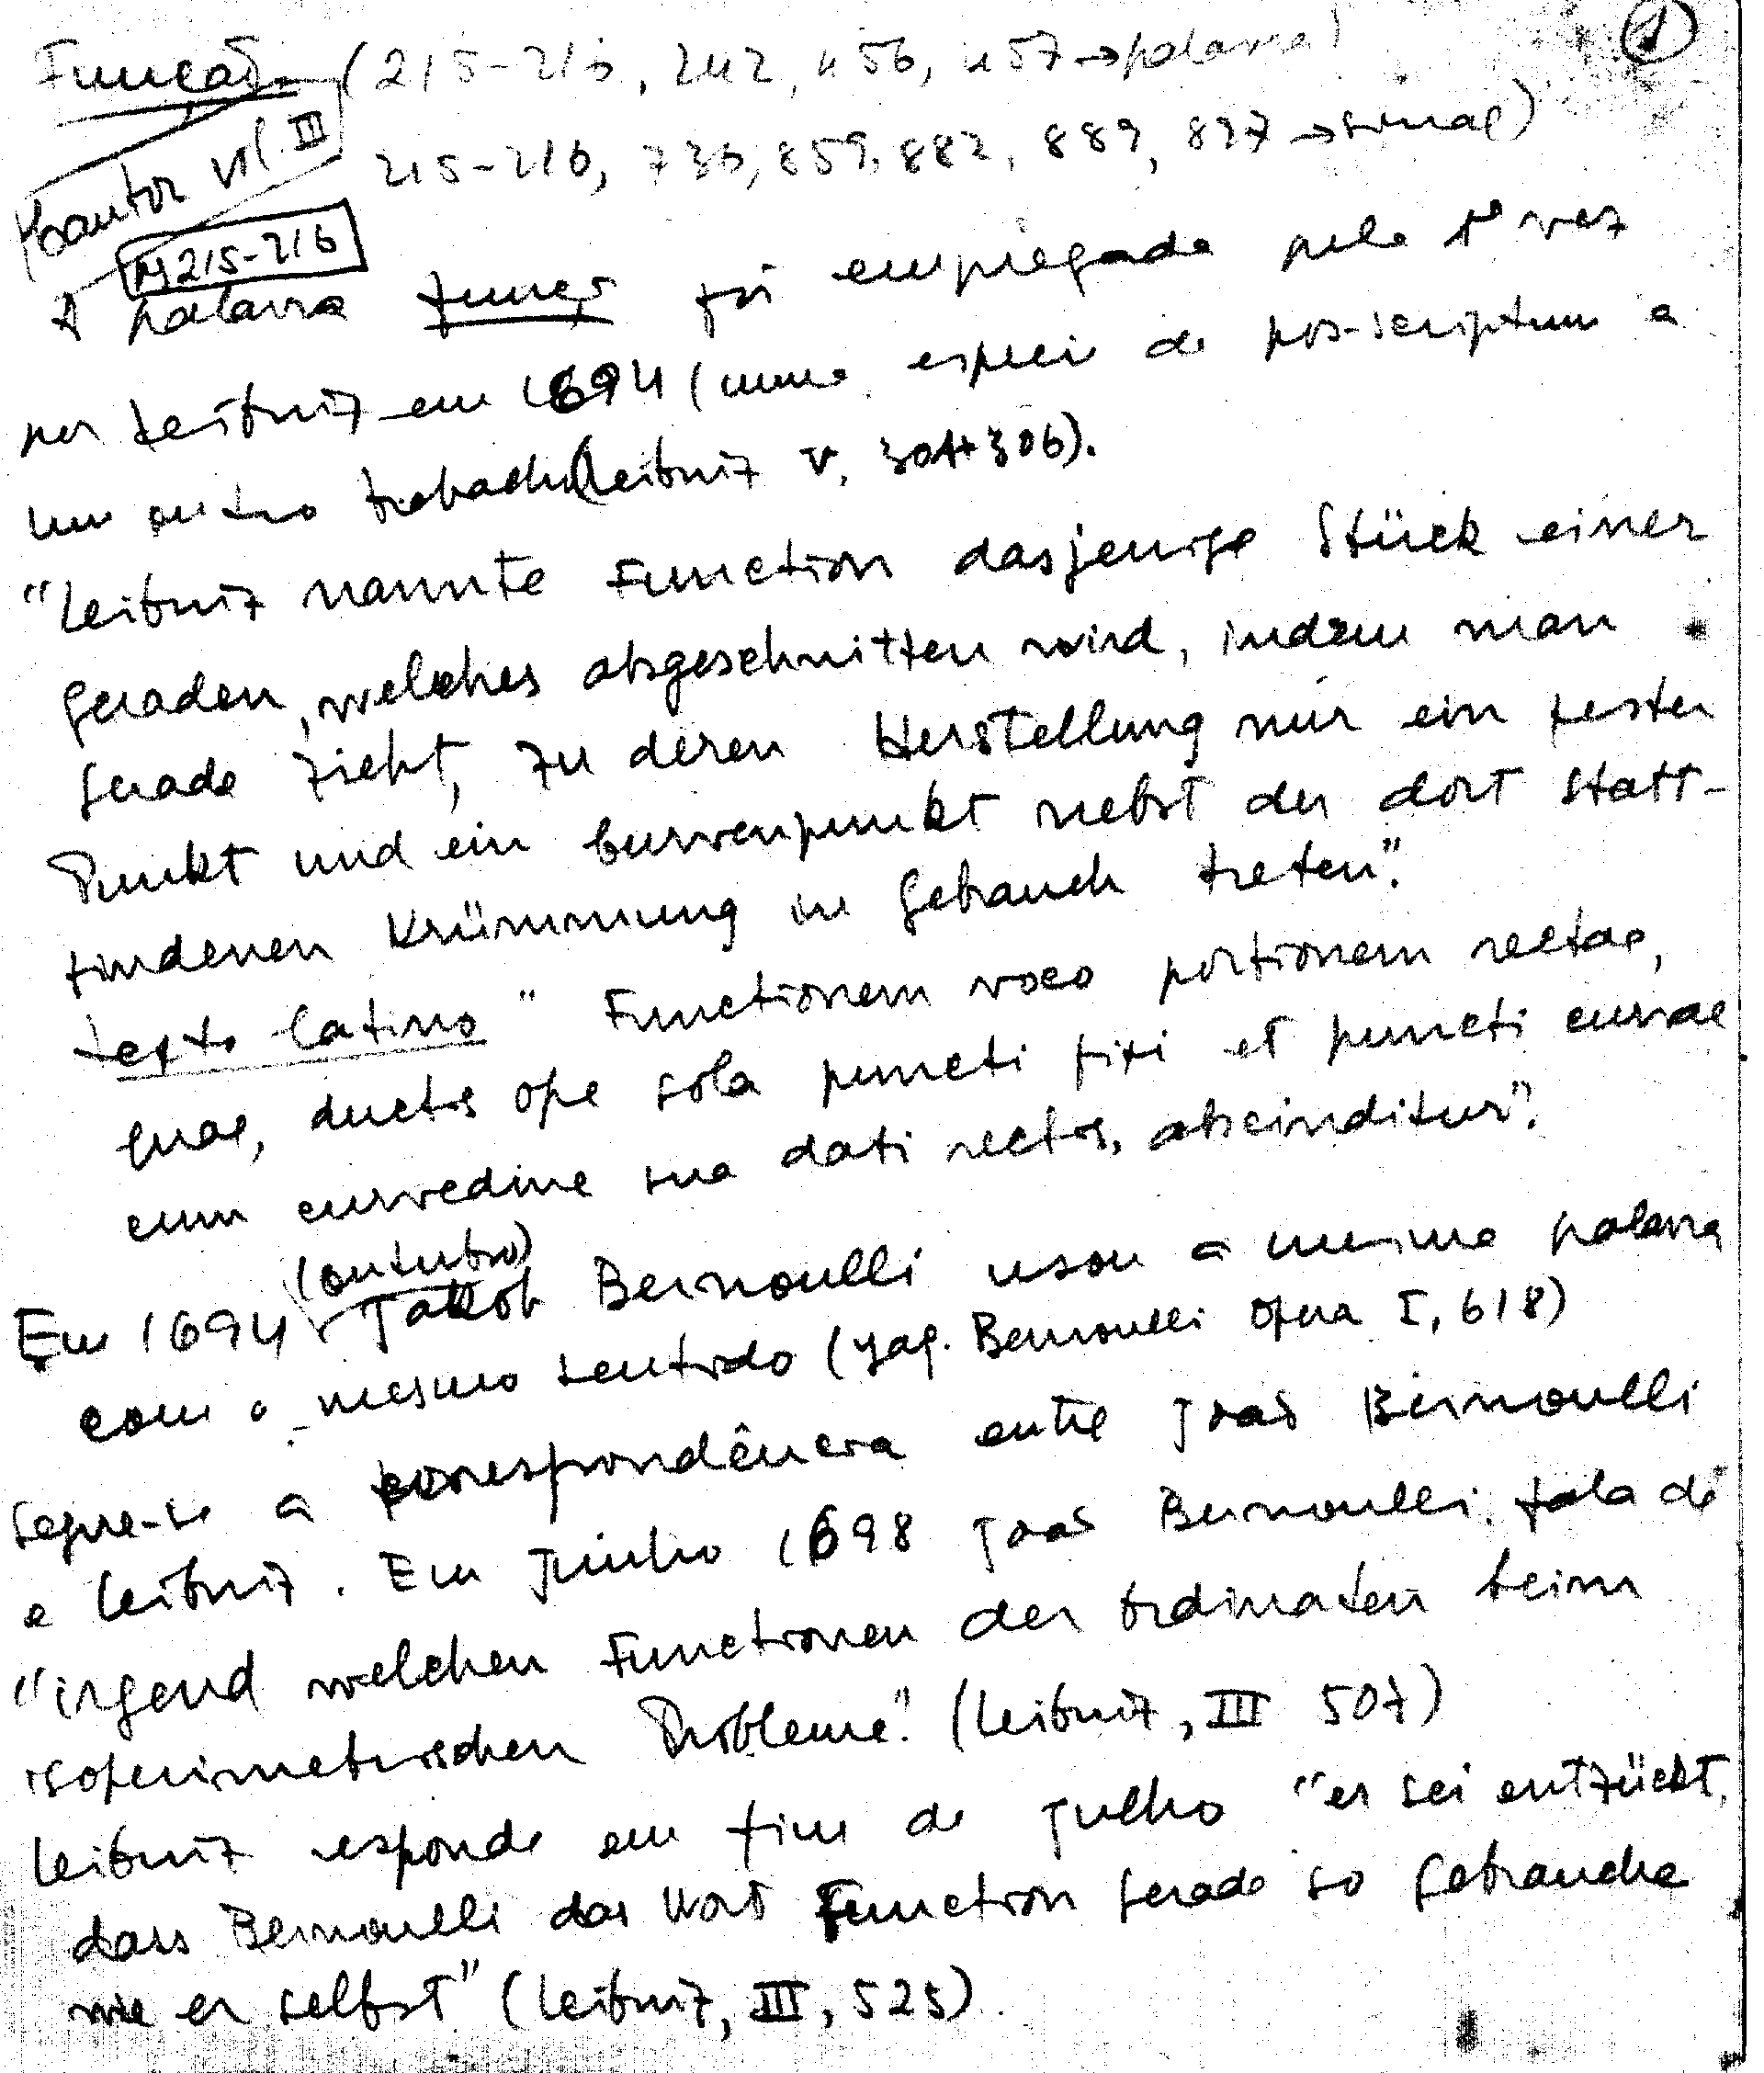 Função (215-216, 242, 456, 457 → palavra)
①
Cantor vol. III
215-216, 736, 859, 882, 889, 897 → sinal)
215-216
A palavra função foi empregada pela 1ª vez
por Leibniz em 1694 (numa espécie de pos-scriptum a
um outro trabalho (Leibniz V, 304+306).
"Leibniz nannte Function dasjenige Stück einer
Geraden, welches abgeschnitten wird, indem man
Gerade zieht, zu deren Herstellung nur ein fester
Punkt und ein Curvenpunkt nebst der dort statt-
findenen Krümmung in Gebrauch treten".
texto latino "Functionem voco portionem rectae,
quae, ductis ope sola puncti fixi et puncti curvae
cum curvedine sua dati rectis, abscinditur".
(outubro)
Em 1694 Jakob Bernoulli usou a mesma palavra
com o mesmo sentido (Jac. Bernoulli Opera I, 618)
Segue-se a correspondência entre João Bernoulli
e Leibniz. Em Junho 1698 João Bernoulli fala de
"irgend welchen Functionen der Ordinaten beim
isoperimetrischen Probleme". (Leibniz, III 507)
Leibniz responde em fim de Julho "er sei entzückt,
dass Bernoulli das Wort Function gerade so gebrauche
wie er selbst" (Leibniz, III, 525).